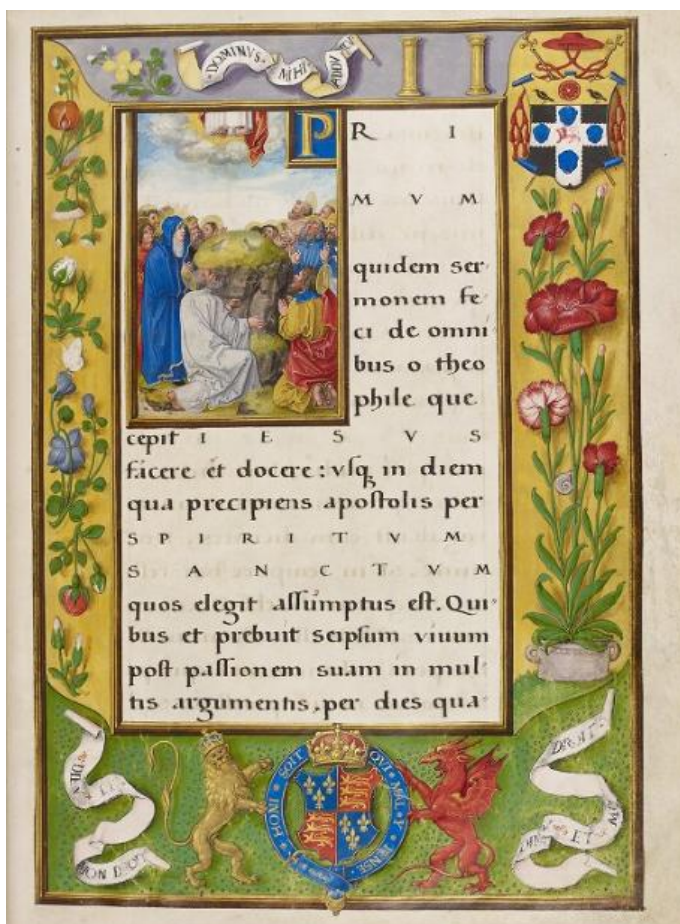 DOMINVS MIHI
PRI
MVM
quidem ser
monem fe
ci de omni
bus o theo
phile que
cepit IESVS
facere et docere : vſq in diem
qua precipiens apoſtolis per
SPIRITVM
SANCTVM
quos elegit aſſumptus eſt. Qui
bus et prebuit seipſum viuum
poſt paſſionem suam in mul
tis argumentis, per dies qua
DIEV ET MON DROIT
HONI SOIT QVI MAL Y PENSE
ET DROIT